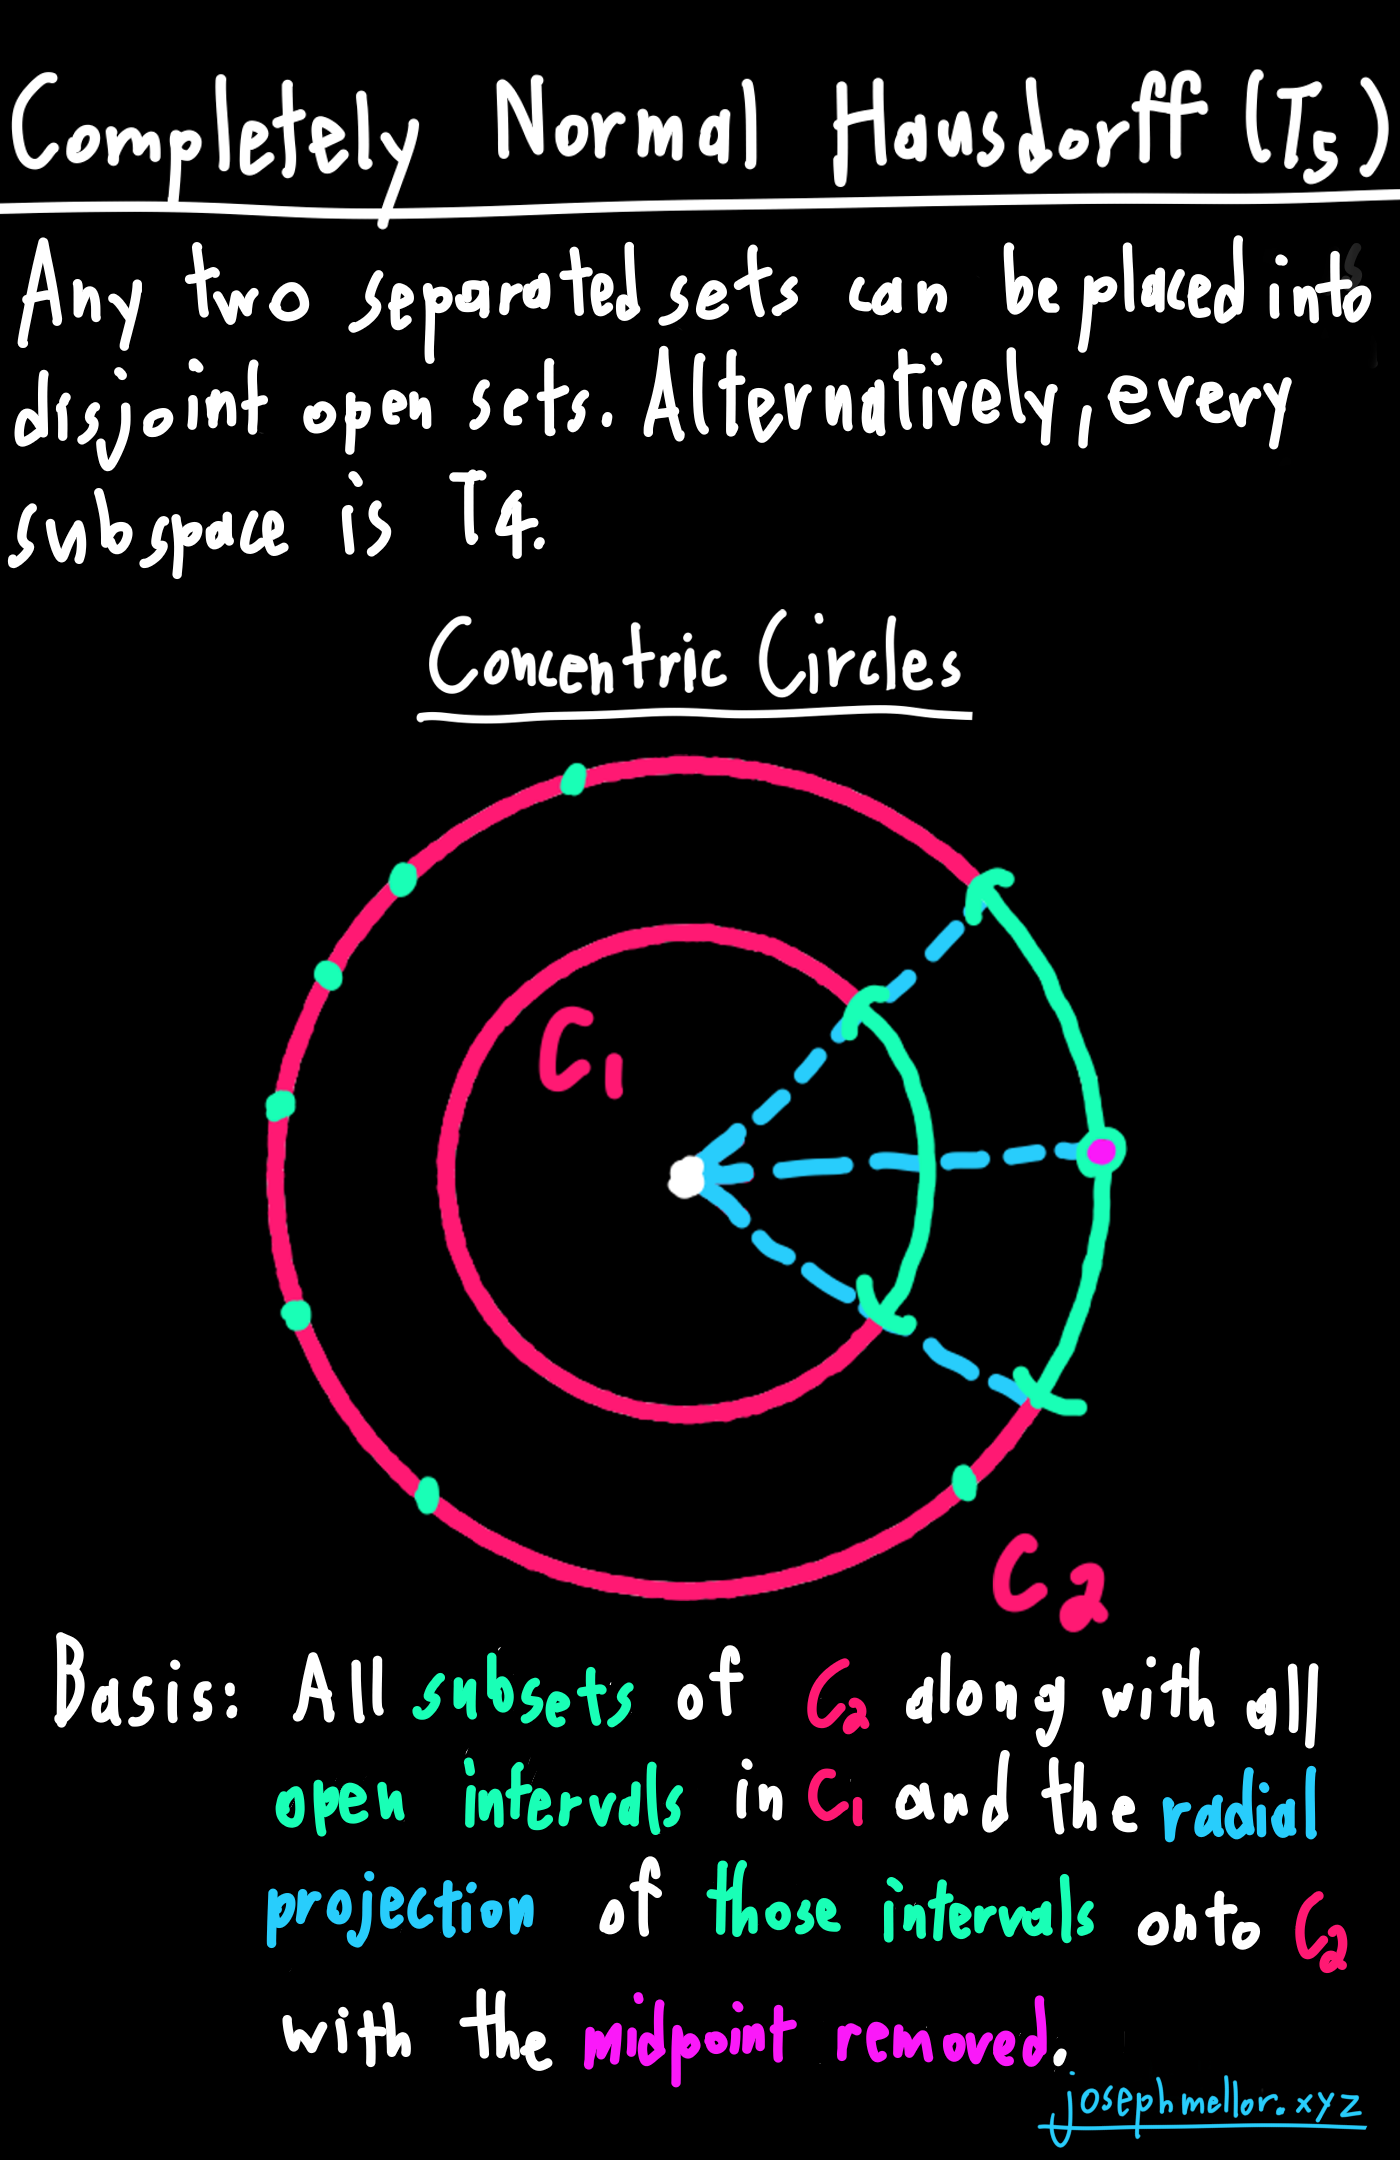 Completely Normal Hausdorff (T5)
Any two separated sets can be placed into
disjoint open sets. Alternatively, every
subspace is T4.
Concentric Circles
C1
C2
Basis: All subsets of C2 along with all
open intervals in C1 and the radial
projection of those intervals onto C2
with the midpoint removed.
josephmellor.xyz